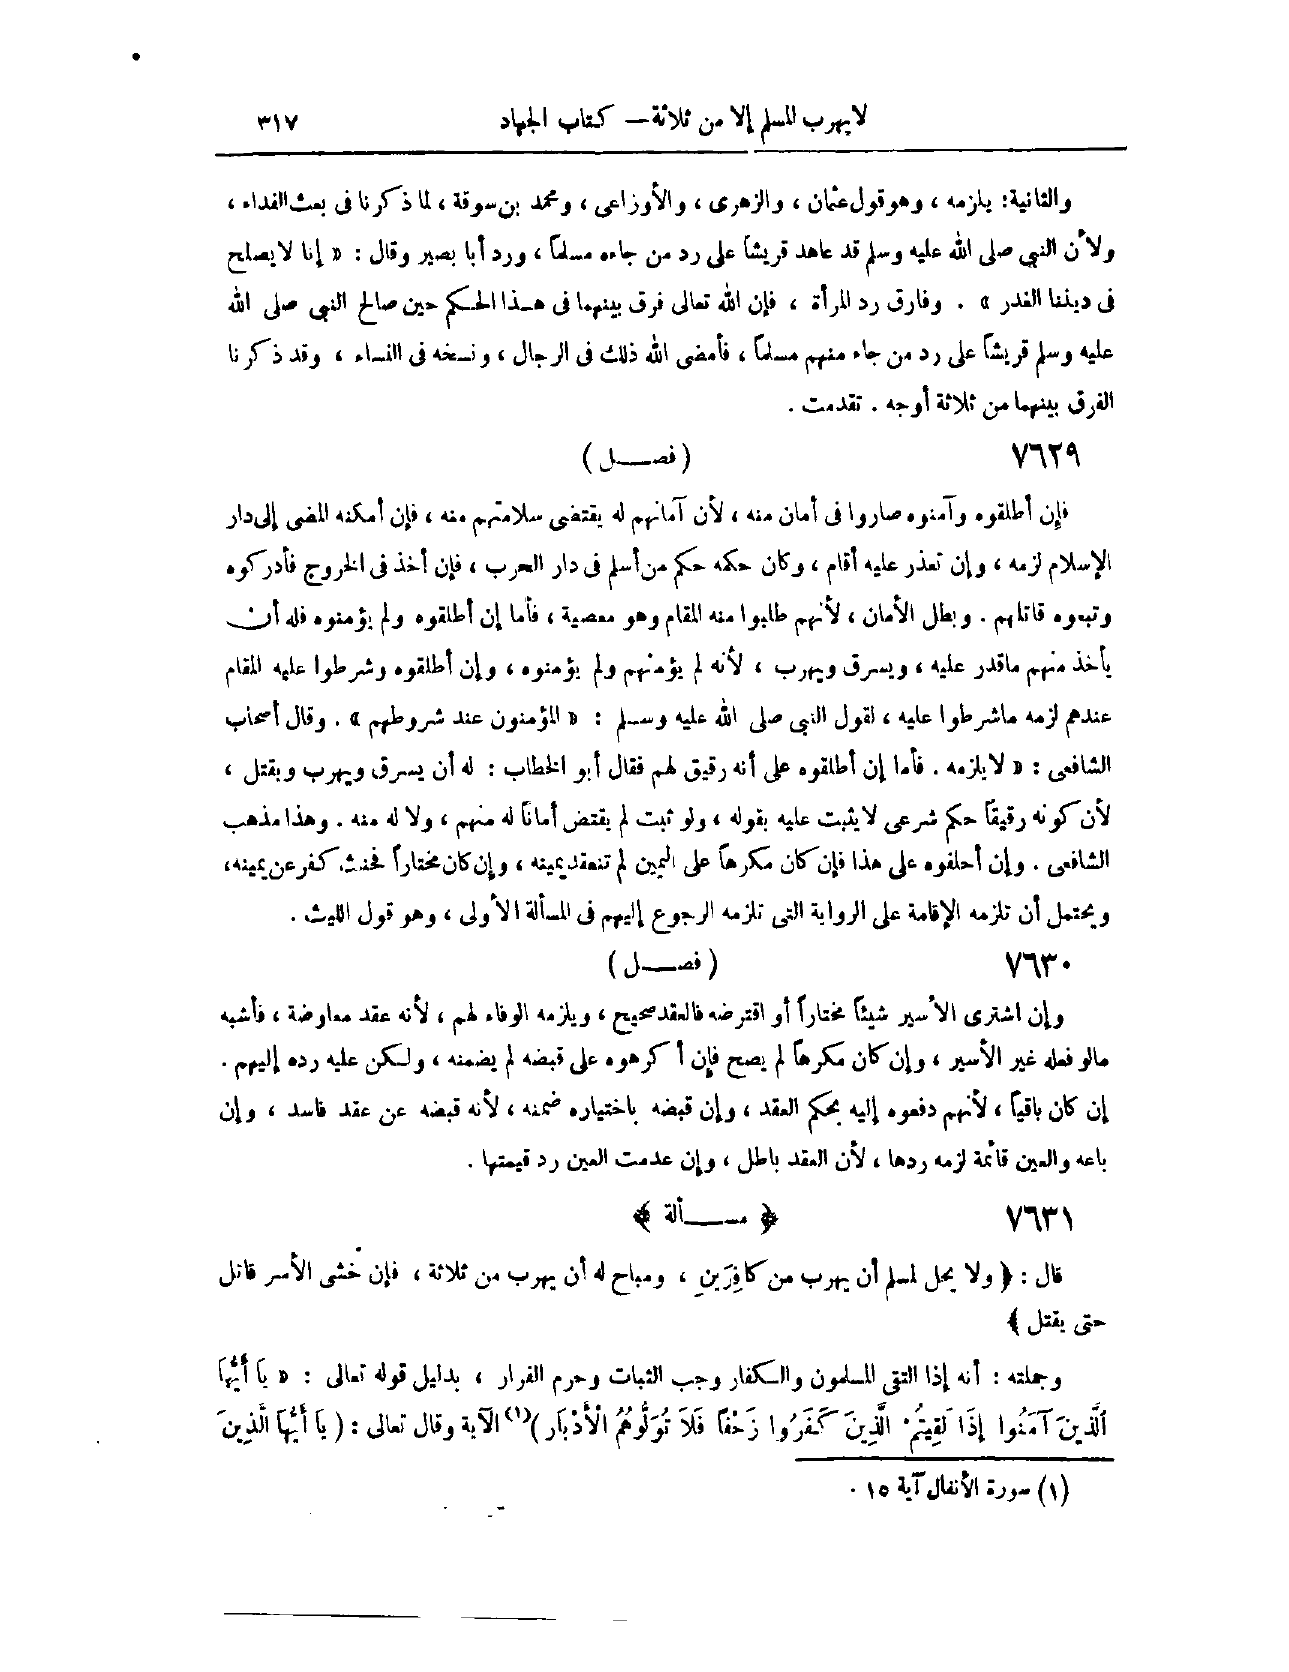 لا يهرب المسلم إلا من ثلاثة — كتاب الجهاد ٣١٧
والثانية: يلزمه ، وهو قول عثمان ، والزهرى ، والأوزاعى ، ومحمد بن سوقة ، لما ذكرنا فى بعث الفداء ،
ولأن النبي صلى الله عليه وسلم قد عاهد قريشاً على رد من جاءه مسلماً ، ورد أبا بصير وقال : « إنا لا يصلح
فى ديننا الغدر » . وفارق رد المرأة ، فإن الله تعالى فرق بينهما فى هـذا الحـكم حين صالح النبي صلى الله
عليه وسلم قريشاً على رد من جاء منهم مسلماً ، فأمضى الله ذلك فى الرجال ، ونسخه فى النساء ، وقد ذكرنا
الفرق بينهما من ثلاثة أوجه . تقدمت .
٧٦٢٩ (فصـــل)
فإن أطلقوه وآمنوه صاروا فى أمان منه ، لأن آمانهم له يقتضى سلامتهم منه ، فإن أمكنه المضى إلى دار
الإسلام لزمه ، وإن تعذر عليه أقام ، وكان حكمه حكم من أسلم فى دار الحرب ، فإن أخذ فى الخروج فأدركوه
وتبعوه قاتلهم . وبطل الأمان ، لأنهم طلبوا منه المقام وهو معصية ، فأما إن أطلقوه ولم يؤمنوه فله أن
يأخذ منهم ماقدر عليه ، ويسرق ويهرب ، لأنه لم يؤمنهم ولم يؤمنوه ، وإن أطلقوه وشرطوا عليه المقام
عندهم لزمه ماشرطوا عليه ، لقول النبي صلى الله عليه وسـلم : « المؤمنون عند شروطهم » . وقال أصحاب
الشافعى : « لا يلزمه . فأما إن أطلقوه على أنه رقيق لهم فقال أبو الخطاب : له أن يسرق ويهرب ويقتل ،
لأن كونه رقيقاً حكم شرعى لا يثبت عليه بقوله ، ولو ثبت لم يقتض أماناً له منهم ، ولا له منه . وهذا مذهب
الشافعى . وإن أحلفوه على هذا فإن كان مكرهاً على اليمين لم تنعقد يمينه ، وإن كان مختاراً فحنث كفر عن يمينه،
ويحتمل أن تلزمه الإقامة على الرواية التى تلزمه الرجوع إليهم فى المسألة الأولى ، وهو قول الليث .
٧٦٣٠ (فصـــل)
وإن اشترى الأسير شيئاً مختاراً أو اقترضه فالعقد صحيح ، ويلزمه الوفاء لهم ، لأنه عقد معاوضة ، فأشبه
مالو فعله غير الأسير ، وإن كان مكرهاً لم يصح فإن أكرهوه على قبضه لم يضمنه ، ولـكن عليه رده إليهم .
إن كان باقياً ، لأنهم دفعوه إليه بحكم العقد ، وإن قبضه باختياره ضمنه ، لأنه قبضه عن عقد فاسد ، وإن
باعه والعين قائمة لزمه ردها ، لأن العقد باطل ، وإن عدمت العين رد قيمتها .
٧٦٣١ ﴿ مســـألة ﴾
قال : ﴿ ولا يحل لمسلم أن يهرب من كافِرَينِ ، ومباح له أن يهرب من ثلاثة ، فإن خشى الأسر قاتل
حتى يقتل ﴾
وجملته : أنه إذا التقى المسلمون والـكفار وجب الثبات وحرم الفرار ، بدليل قوله تعالى : « يَا أَيُّهَا
الَّذِينَ آمَنُوا إِذَا لَقِيتُمُ الَّذِينَ كَفَرُوا زَحْفاً فَلَا تُوَلُّوهُمُ الْأَدْبَارَ )(١) الآية وقال تعالى : ( يَا أَيُّهَا الَّذِينَ
(١) سورة الأنفال آية ١٥ .